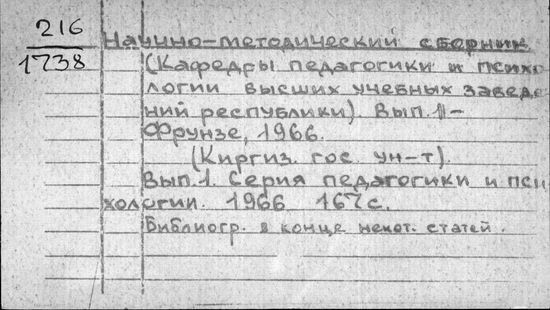 216
1738
Научно-методический сборник
(Кафедры педагогики и психо
логии высших учебных заведе
ний республики). Вып. 1-
Фрунзе, 1966.
(Киргиз. гос. ун-т).
Вып. 1. Серия педагогики и пси
хологии. 1966 167 с.
Библиогр. в конце некот. статей.